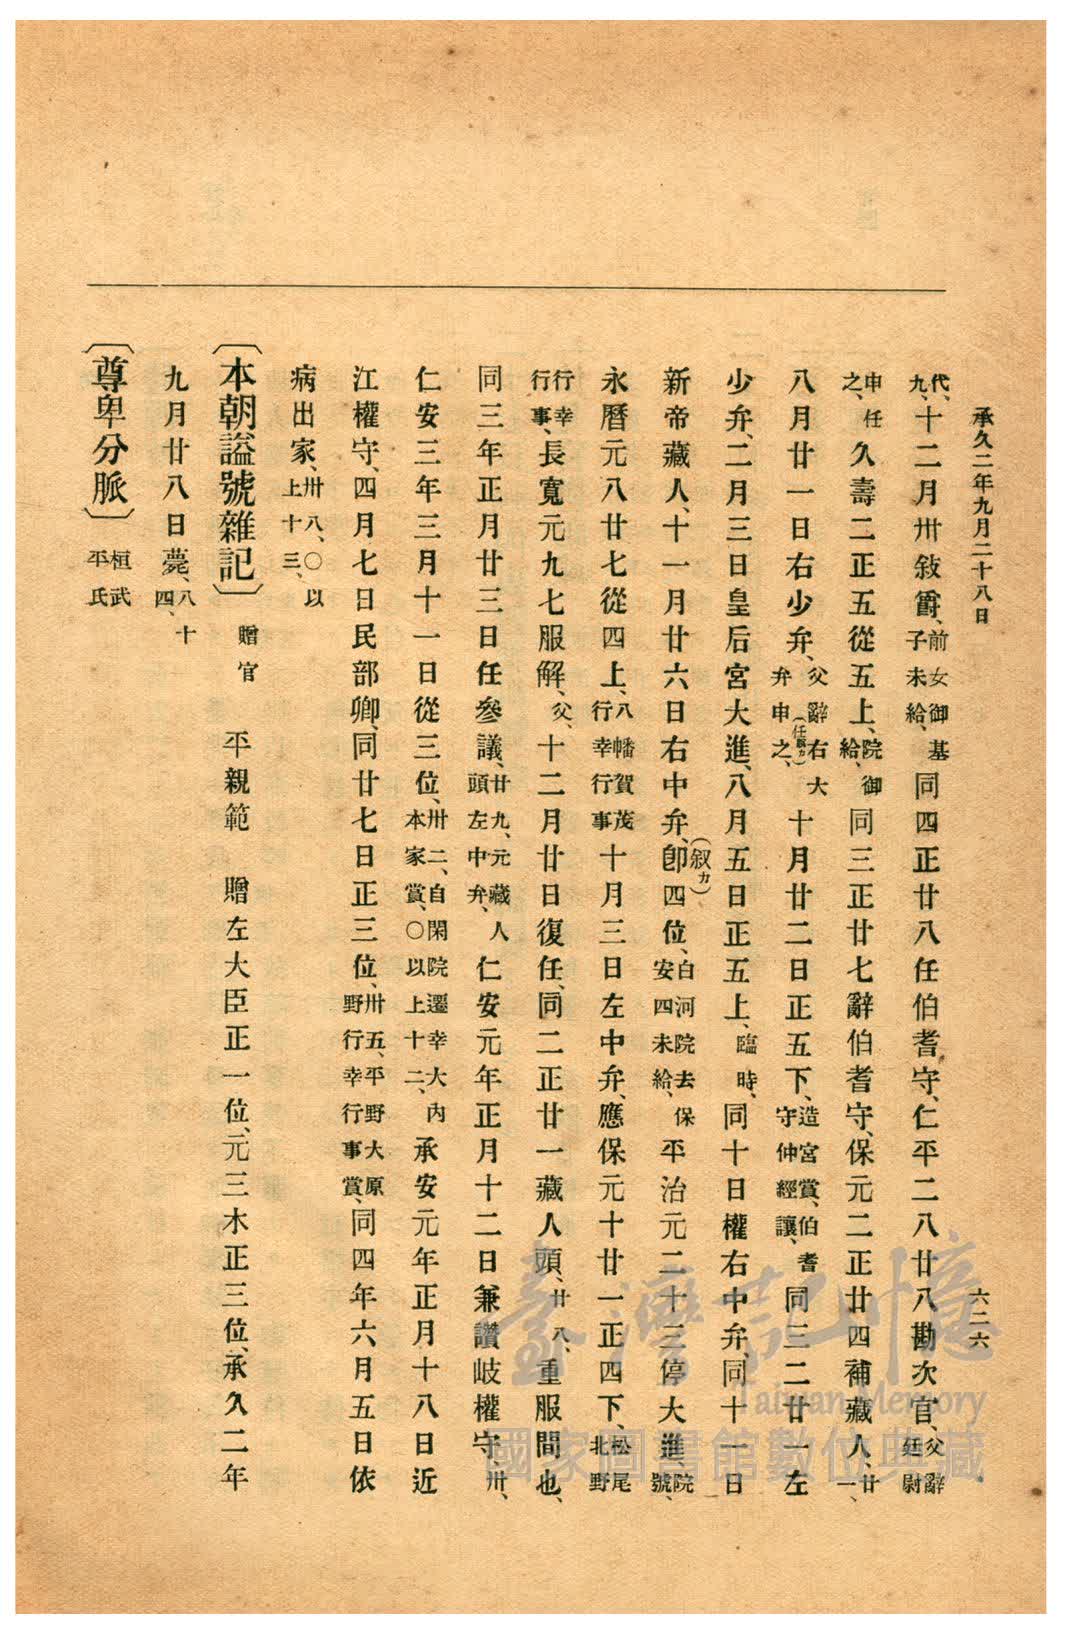 承久二年九月二十八日
六二六
代、九、十二月卅敍爵、前女御基子未給、同四正廿八任伯耆守、仁平二八廿八勘次官、父辭廷尉
申任之、久壽二正五從五上、院御給、同三正廿七辭伯耆守、保元二正廿四補藏人、廿一、
八月廿一日右少弁、父辭右大弁申(任歟カ)之、十月廿二日正五下、造宮賞、伯耆守仲經讓、同三二廿一左
少弁、二月三日皇后宮大進、八月五日正五上、臨時、同十日權右中弁、同十一日
新帝藏人、十一月廿六日右中弁、卽(叙カ)四位、白河院去保安四未給、平治元二十三停大進、院號、
永曆元八廿七從四上、八幡賀茂行幸行事十月三日左中弁、應保元十廿一正四下、松尾北野
行幸行事、長寬元九七服解、父、十二月廿日復任、同二正廿一藏人頭、廿八、重服間也、
同三年正月廿三日任參議、廿九、元藏人頭左中弁、仁安元年正月十二日兼讚岐權守、卅、
仁安三年三月十一日從三位、卅二、自閑院遷幸大內本家賞、〇以上十二、承安元年正月十八日近
江權守、四月七日民部卿、同廿七日正三位、卅五、平野大原野行幸行事賞、同四年六月五日依
病出家、卅八、〇以上十三、
〔本朝謚號雜記〕 贈官 平親範 贈左大臣正一位、元三木正三位、承久二年
九月廿八日薨、八十四、
〔尊卑分脈〕 桓武平氏
臺灣記憶
Taiwan Memory
國家圖書館數位典藏